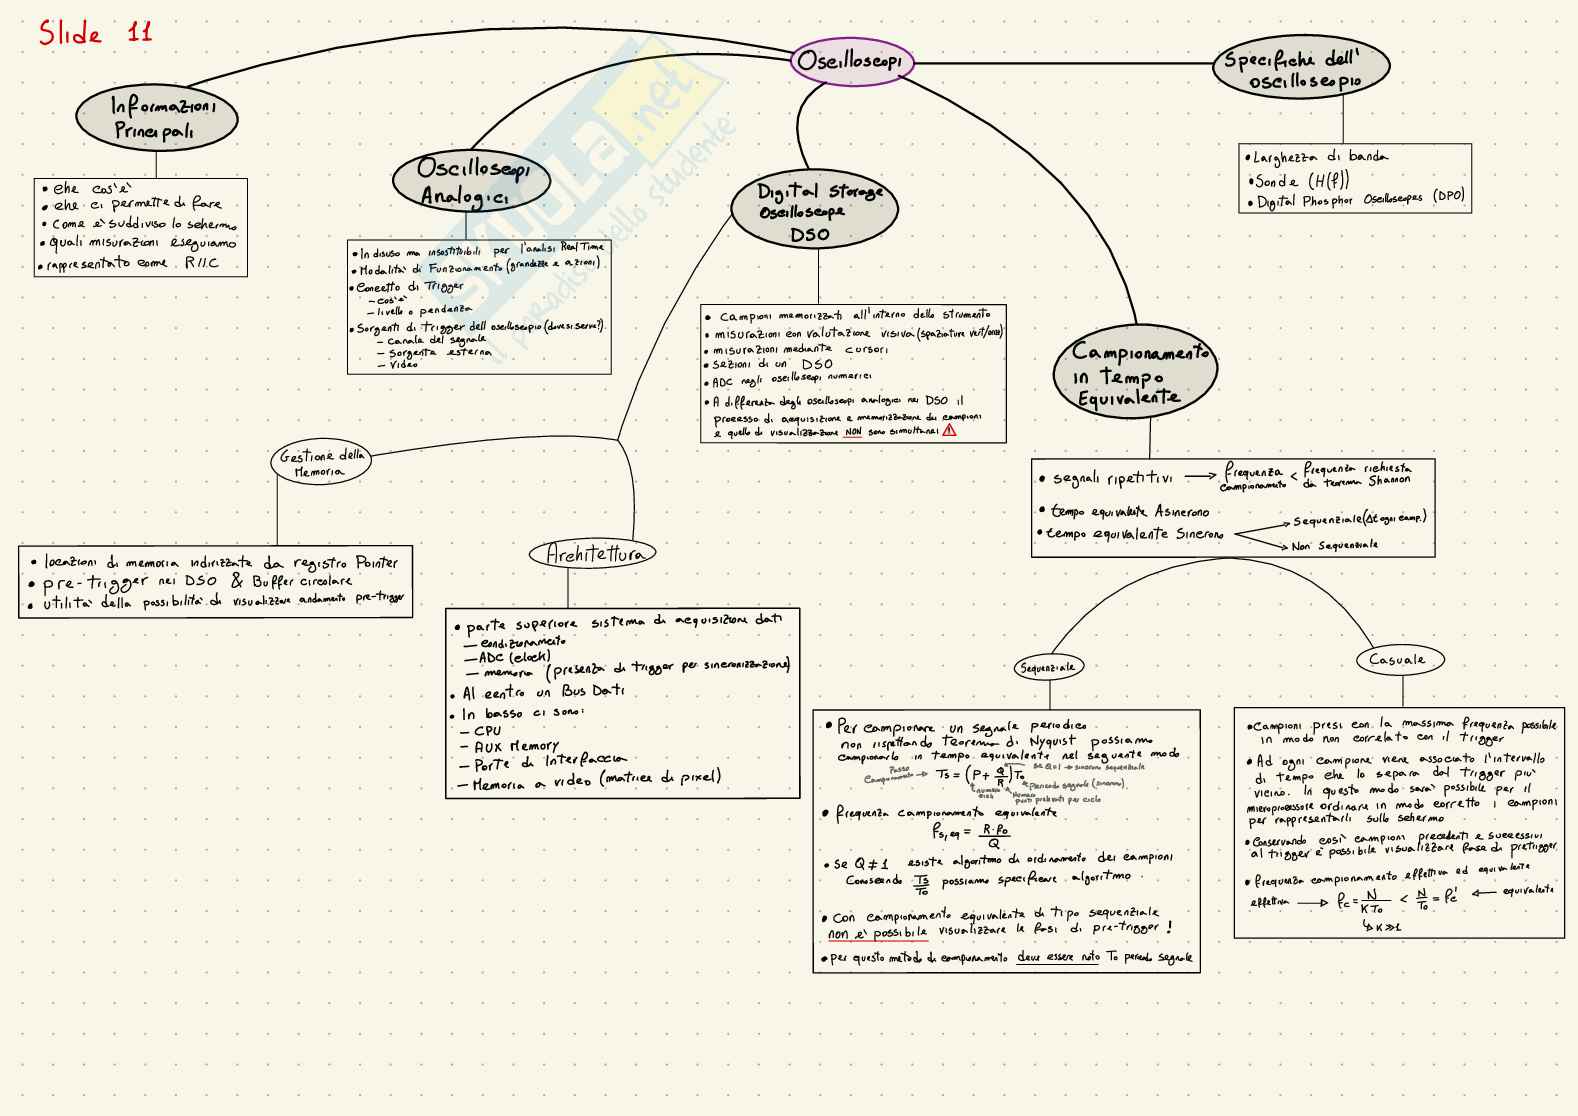 Slide 11
Oscilloscopi
Specifiche dell'
oscilloscopio
Informazioni
Principali
Oscilloscopi
Analogici
Digital Storage
Oscilloscope
DSO
• Larghezza di banda
• Sonde (H(f))
• Digital Phosphor Oscilloscopes (DPO)
• che cos'è
• che ci permette di fare
• come è suddiviso lo schermo
• quali misurazioni eseguiamo
• rappresentato come R//C
• In disuso ma insostituibili per l'analisi Real Time
• Modalità di Funzionamento (grandezze e azioni)
• Concetto di Trigger
– cos'è
– livello o pendenza
• Sorgenti di trigger dell'oscilloscopio (dove si serve?)
– Canale del segnale
– Sorgente esterna
– Video
SKUOLA.net
il paradiso dello studente
• Campioni memorizzati all'interno dello strumento
• misurazioni con valutazione visiva (spaziature vert/orizz)
• misurazioni mediante cursori
• Sezioni di un DSO
• ADC negli oscilloscopi numerici
• A differenza degli oscilloscopi analogici nei DSO il
processo di acquisizione e memorizzazione dei campioni
e quello di visualizzazione NON sono simultanei
Campionamento
in tempo
Equivalente
• segnali ripetitivi → frequenza campionamento < frequenza richiesta da teorema Shannon
• tempo equivalente Asincrono
• tempo equivalente Sincrono
Sequenziale (Δt ogni camp.)
Non Sequenziale
Gestione della
Memoria
• locazioni di memoria indirizzate da registro Pointer
• pre-trigger nei DSO & Buffer circolare
• utilità della possibilità di visualizzare andamento pre-trigger
Architettura
• parte superiore sistema di acquisizione dati
– condizionamento
– ADC (clock)
– memoria (presenza di trigger per sincronizzazione)
• Al centro un Bus Dati
• In basso ci sono:
– CPU
– AUX Memory
– Porte di Interfaccia
– Memoria a video (matrice di pixel)
Sequenziale
• Per campionare un segnale periodico
non rispettando teorema di Nyquist possiamo
campionarlo in tempo equivalente nel seguente modo
Passo
Campionamento → Ts = (P + Q/R) To
se Q=1 → sincrono sequenziale
periodo segnale (sincrono)
numero
cicli
numero
punti prelevati per ciclo
• frequenza campionamento equivalente
fs,eq = R·fo / Q
• se Q ≠ 1 esiste algoritmo di ordinamento dei campioni
Conoscendo Ts/To possiamo specificare algoritmo.
• Con campionamento equivalente di tipo sequenziale
non è possibile visualizzare le fasi di pre-trigger!
• per questo metodo di campionamento deve essere noto To periodo segnale
Casuale
• Campioni presi con la massima frequenza possibile
in modo non correlato con il trigger
• Ad ogni campione viene associato l'intervallo
di tempo che lo separa dal trigger più
vicino. In questo modo sarà possibile per il
microprocessore ordinare in modo corretto i campioni
per rappresentarli sullo schermo
• Conservando così campioni precedenti e successivi
al trigger è possibile visualizzare fase di pretrigger
• frequenza campionamento effettiva ed equivalente
effettiva → fc = N/KTo < N/To = fc' ← equivalente
↳ K≫1